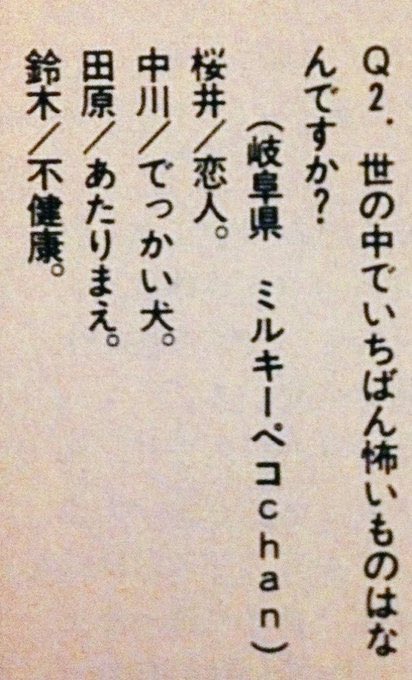 Q2．世の中でいちばん怖いものはな
んですか?
(岐阜県　ミルキーペコchan)
桜井／恋人。
中川／でっかい犬。
田原／あたりまえ。
鈴木／不健康。